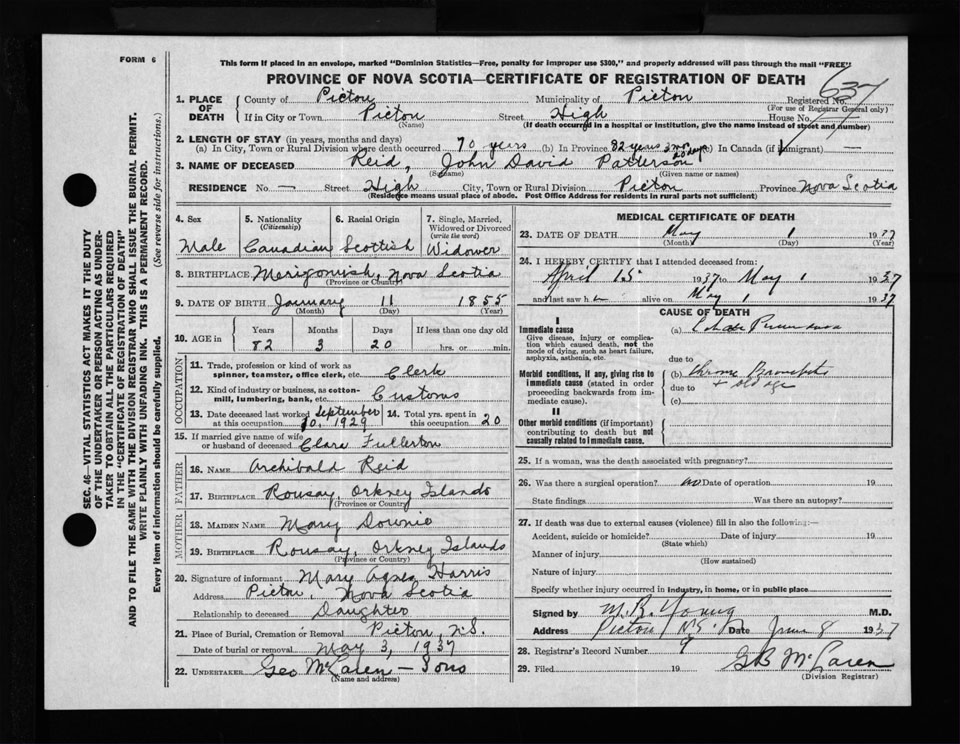 FORM 6
This form if placed in an envelope, marked "Dominion Statistics—Free, penalty for improper use $300," and properly addressed will pass through the mail "FREE"
PROVINCE OF NOVA SCOTIA—CERTIFICATE OF REGISTRATION OF DEATH
637
1. PLACE OF DEATH
County of Pictou Municipality of Pictou Registered No.
(For use of Registrar General only)
If in City or Town Pictou Street High House No.
(Name) (If death occurred in a hospital or institution, give the name instead of street and number)
2. LENGTH OF STAY (in years, months and days)
(a) In City, Town or Rural Division where death occurred 70 years (b) In Province 82 years 3 mo 20 days (c) In Canada (if immigrant) —
3. NAME OF DECEASED Reid, John David Patterson
(Surname) (Given name or names)
RESIDENCE No. — Street High City, Town or Rural Division Pictou Province Nova Scotia
(Residence means usual place of abode. Post Office Address for residents in rural parts not sufficient)
4. Sex Male
5. Nationality (Citizenship) Canadian
6. Racial Origin Scottish
7. Single, Married, Widowed or Divorced (write the word) Widower
8. BIRTHPLACE Merigomish, Nova Scotia
(Province or Country)
9. DATE OF BIRTH January 11 1855
(Month) (Day) (Year)
10. AGE in Years Months Days If less than one day old
82 3 20 hrs. or min.
OCCUPATION
11. Trade, profession or kind of work as spinner, teamster, office clerk, etc. Clerk
12. Kind of industry or business, as cotton-mill, lumbering, bank, etc. Customs
13. Date deceased last worked at this occupation September 30, 1929
14. Total yrs. spent in this occupation 20
15. If married give name of wife or husband of deceased Clara Fullerton
FATHER
16. NAME Archibald Reid
17. BIRTHPLACE Rousay, Orkney Islands
(Province or Country)
MOTHER
18. MAIDEN NAME Mary Downie
19. BIRTHPLACE Rousay, Orkney Islands
(Province or Country)
20. Signature of informant Mary Agnes Harris
Address Pictou, Nova Scotia
Relationship to deceased Daughter
21. Place of Burial, Cremation or Removal Pictou, N.S.
Date of burial or removal May 3, 1937
22. UNDERTAKER Geo McLaren — Sons
(Name and address)
MEDICAL CERTIFICATE OF DEATH
23. DATE OF DEATH May 1 1937
(Month) (Day) (Year)
24. I HEREBY CERTIFY that I attended deceased from:
April 15 1937 to May 1 1937
and last saw h alive on May 1 1937
CAUSE OF DEATH
I
Immediate cause
Give disease, injury or complication which caused death, not the mode of dying, such as heart failure, asphyxia, asthenia, etc.
(a)
due to
Morbid conditions, if any, giving rise to immediate cause (stated in order proceeding backwards from immediate cause).
(b) Chronic Bronchitis
due to + old age
(c)
II
Other morbid conditions (if important) contributing to death but not causally related to immediate cause.
25. If a woman, was the death associated with pregnancy?
26. Was there a surgical operation? no Date of operation 19
State findings Was there an autopsy?
27. If death was due to external causes (violence) fill in also the following:—
Accident, suicide or homicide? Date of injury 19
(State which)
Manner of injury
(How sustained)
Nature of injury
Specify whether injury occurred in industry, in home, or in public place
Signed by M.R. Young M.D.
Address Pictou N.S. Date June 8 1937
28. Registrar's Record Number 9
29. Filed 19 G B McLaren
(Division Registrar)
SEC. 46—VITAL STATISTICS ACT MAKES IT THE DUTY
OF THE UNDERTAKER OR PERSON ACTING AS UNDER-
TAKER TO OBTAIN ALL THE PARTICULARS REQUIRED
IN THE "CERTIFICATE OF REGISTRATION OF DEATH"
AND TO FILE THE SAME WITH THE DIVISION REGISTRAR WHO SHALL ISSUE THE BURIAL PERMIT.
WRITE PLAINLY WITH UNFADING INK. THIS IS A PERMANENT RECORD.
Every item of information should be carefully supplied. (See reverse side for instructions.)